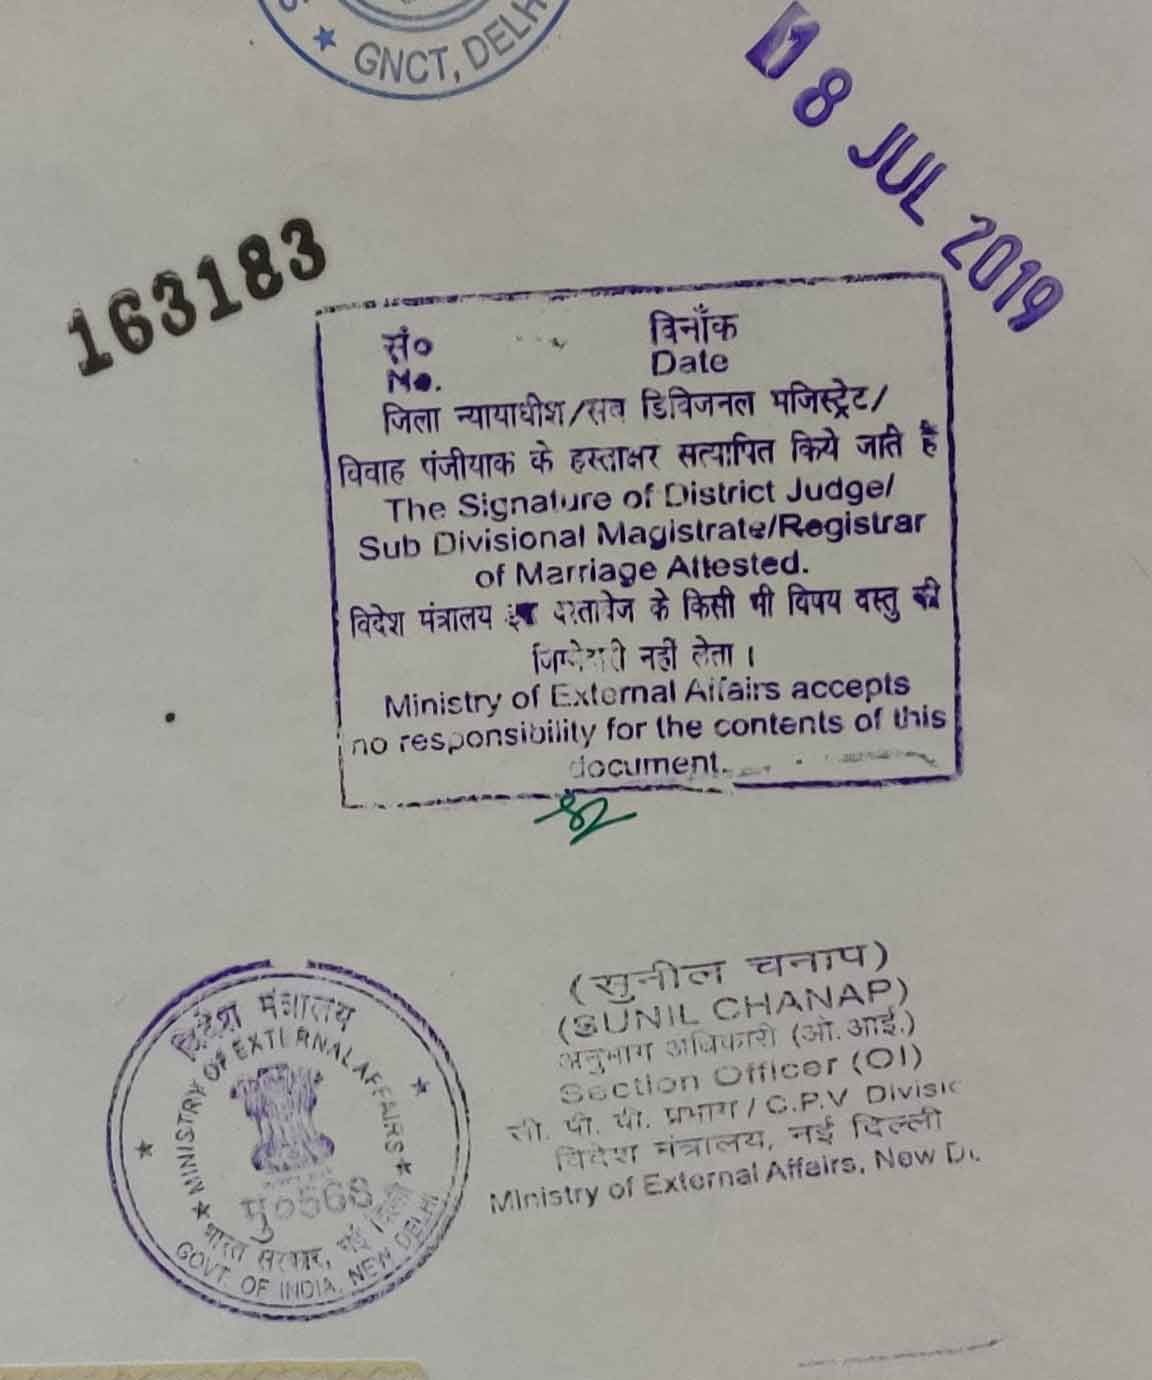 GNCT, DELH
18 JUL 2019
163183
सं०
No.
दिनाँक
Date
जिला न्यायाधीश/सब डिविजनल मजिस्ट्रेट/
विवाह पंजीयाक के हस्ताक्षर सत्यापित किये जाते है
The Signature of District Judge/
Sub Divisional Magistrate/Registrar
of Marriage Attested.
विदेश मंत्रालय इस दस्तावेज के किसी भी विषय वस्तु की
जिम्मेदारी नहीं लेता ।
Ministry of External Affairs accepts
no responsibility for the contents of this
document.
(सुनील चनाप)
(SUNIL CHANAP)
अनुभाग अधिकारी (ओ. आई.)
Section Officer (OI)
सी. पी. वी. प्रभाग / C.P.V Divisi
विदेश मंत्रालय, नई दिल्ली
Ministry of External Affairs, New D
विदेश मंत्रालय
MINISTRY OF EXTERNAL AFFAIRS
मु०568
भारत सरकार, नई दिल्ली
GOVT. OF INDIA, NEW DELHI